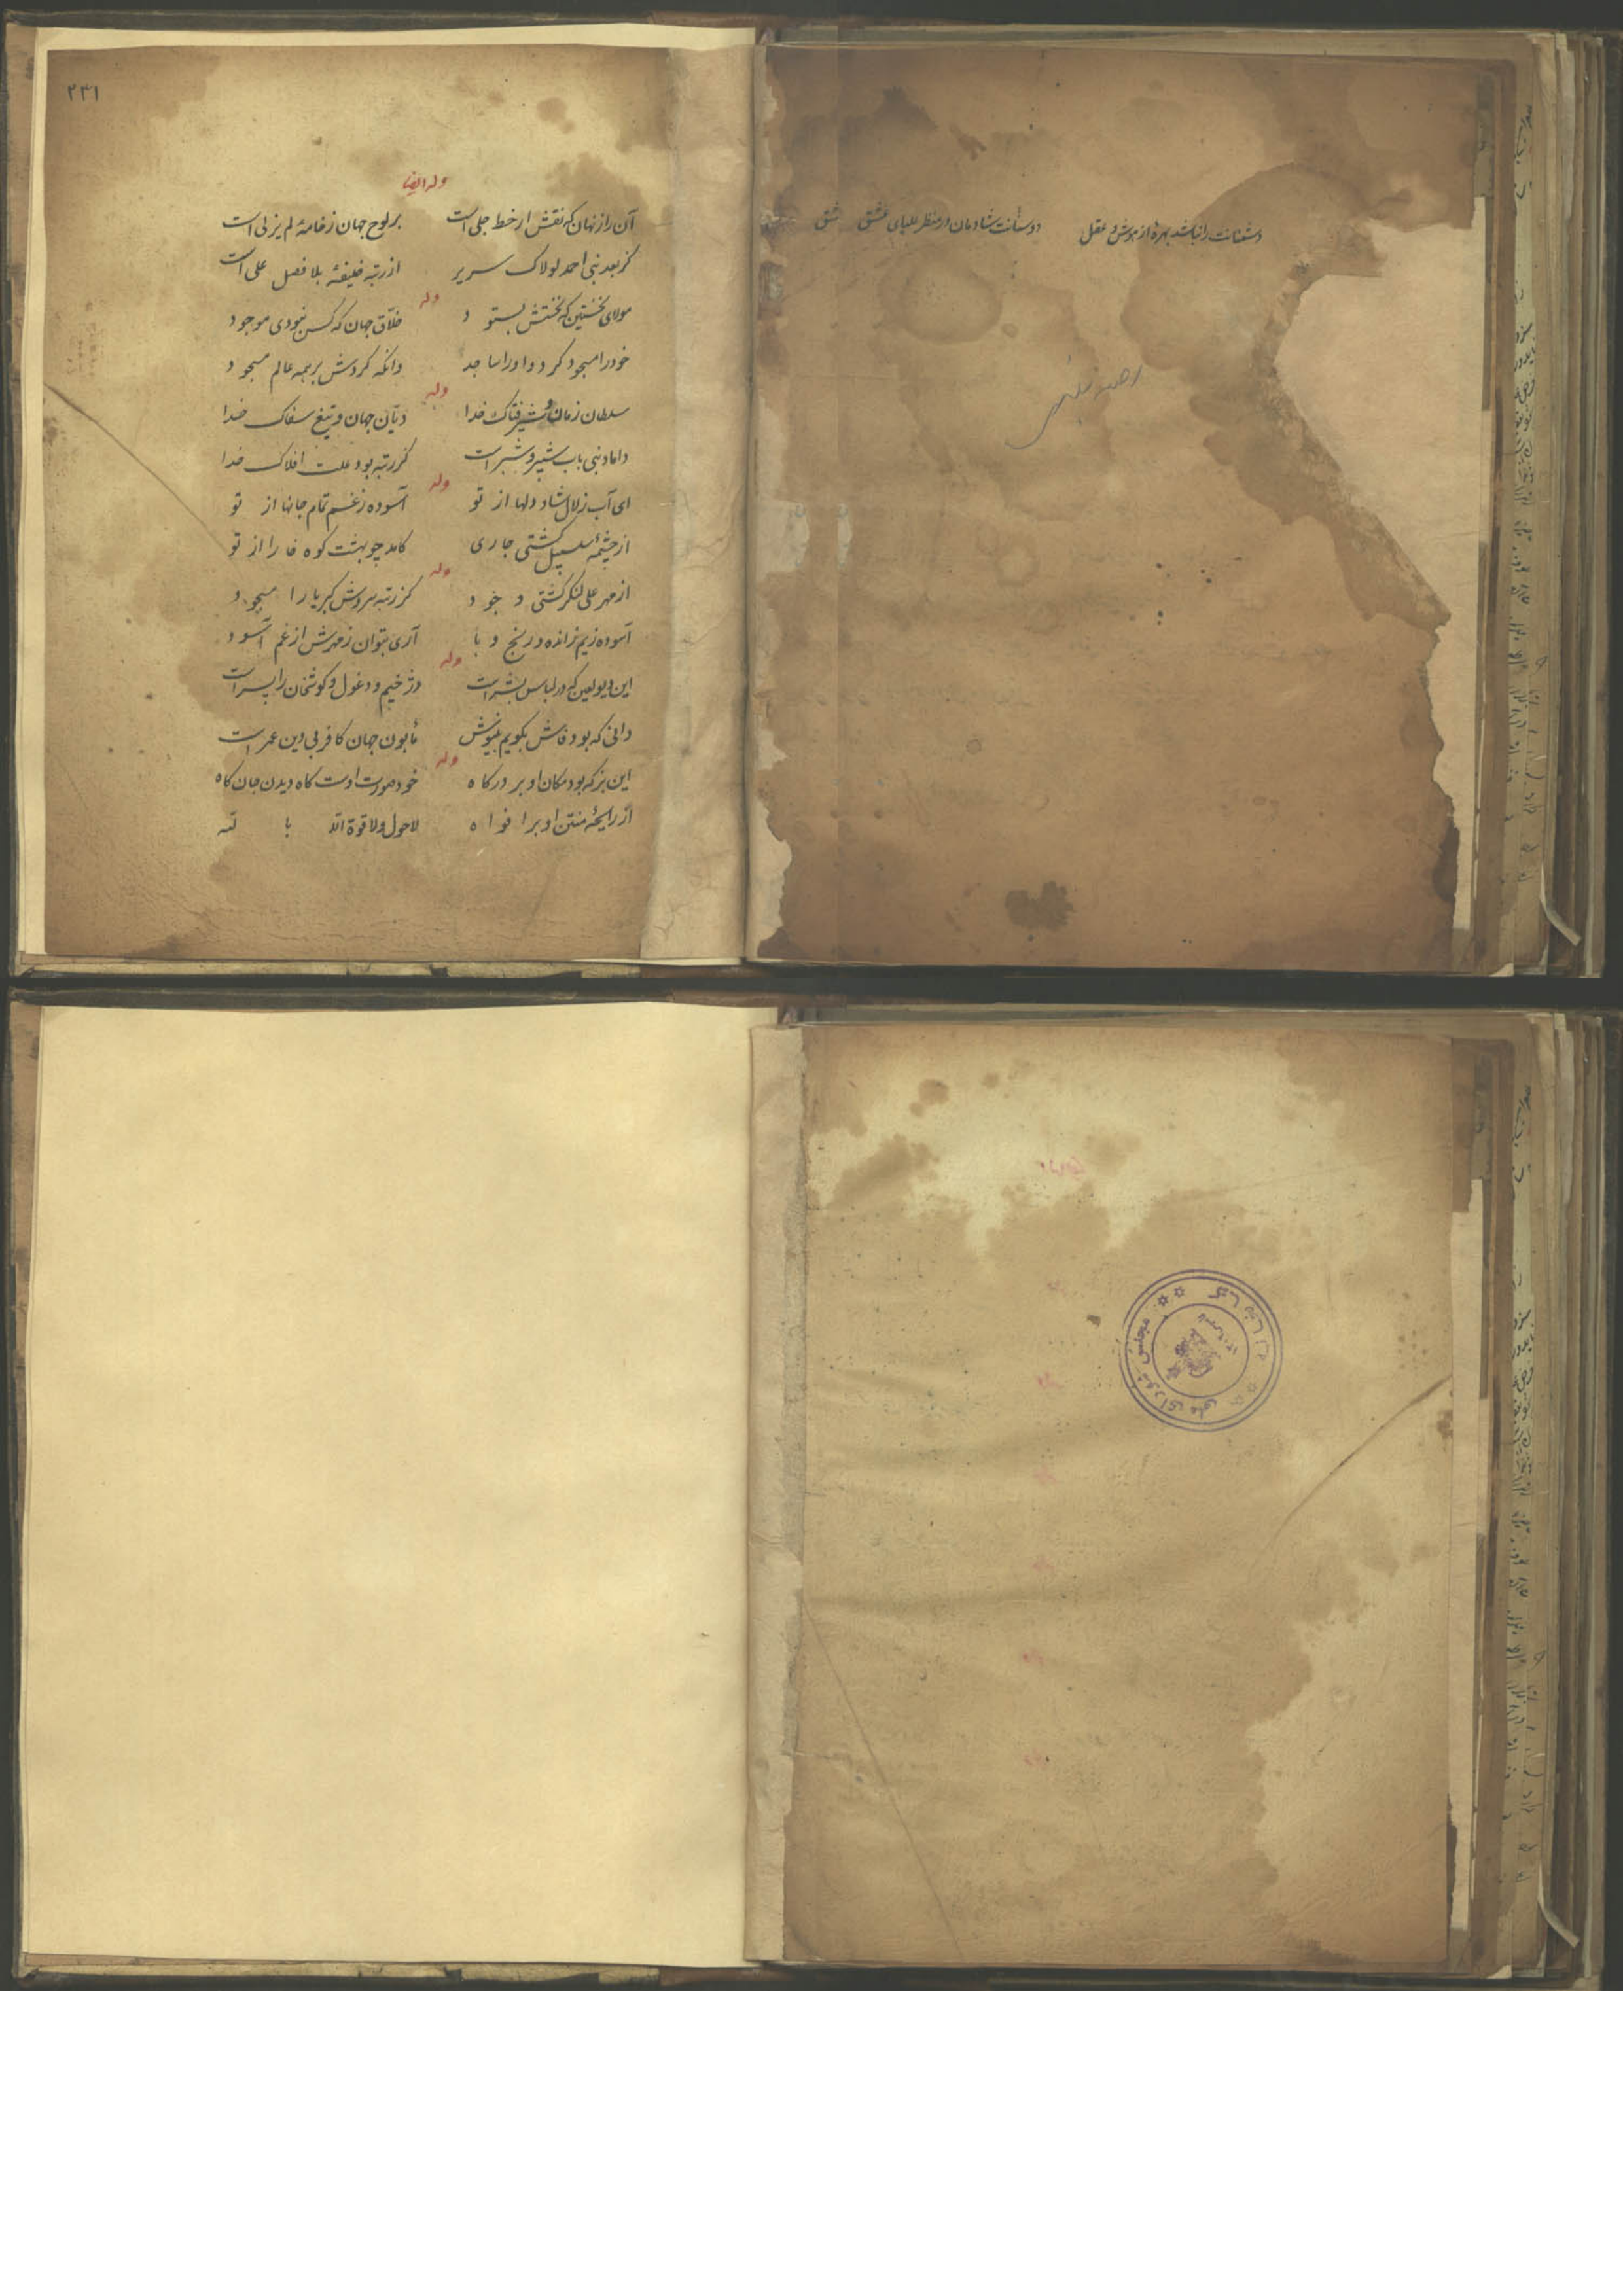 دشمنانت را نباشد بهرهٔ از هوش و عقل
دوستانت شادمان در منظر علیای عشق
عشق
۲۳۱
وله ایضا
آن راز نهان که نقش از خط جلی است بر لوح جهان ز خامهٔ لم یزلی است
کز بعد نبی احمد لولاک سریر از رتبه خلیفهٔ بلا فصل علی است
وله
مولای نخستین که نخستش بستود خلاق جهان که کس نبودی موجود
خود را مسجود کرد و او را ساجد وانگه کردش بر همه عالم مسجود
وله
سلطان زمان و شیر فتاک خدا دیان جهان و تیغ سفاک خدا
داماد نبی باب شبیر و شبر است کز رتبه بود علت افلاک خدا
وله
ای آب زلال شاد دلها از تو آسوده ز غم تمام جانها از تو
از چشمهٔ سلسبیل کشتی جاری کامد چو بهشت کوه را از تو
وله
از مهر علی لنگر کشتی وجود کز رتبه سروش کبریا را مسجود
آسوده زیم ز انده و رنج و بآری بتوان ز مهرش از غم آسود
وله
این دیو لعین که در لباس بشر است دژخیم و دغول و کوتخان را پسر است
دانی که بود فاش بگویم بنیوش مأبون جهان کافر بی دین عمر است
وله
این بز که بود مکان او بر درگاه خود صورت اوست گاه دیدن جان کاه
از رایحهٔ منتن او بر افواه لاحول ولا قوة الا بالله
کتابخانه مجلس شورای ملی